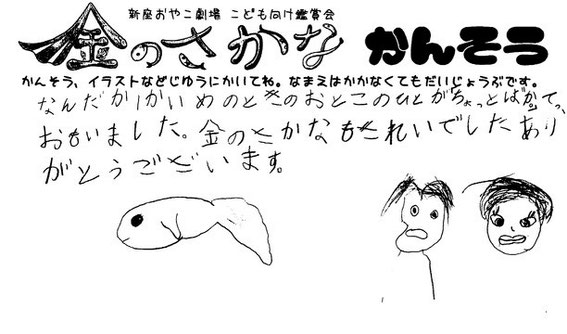 新座おやこ劇場 こども向け鑑賞会
金のさかな かんそう
かんそう、イラストなどじゆうにかいてね。なまえはかかなくてもだいじょうぶです。
なんだか1かいめのときのおとこのひとがちょっとばかってっ、
おもいました。金のさかなもきれいでしたあり
がとうございます。